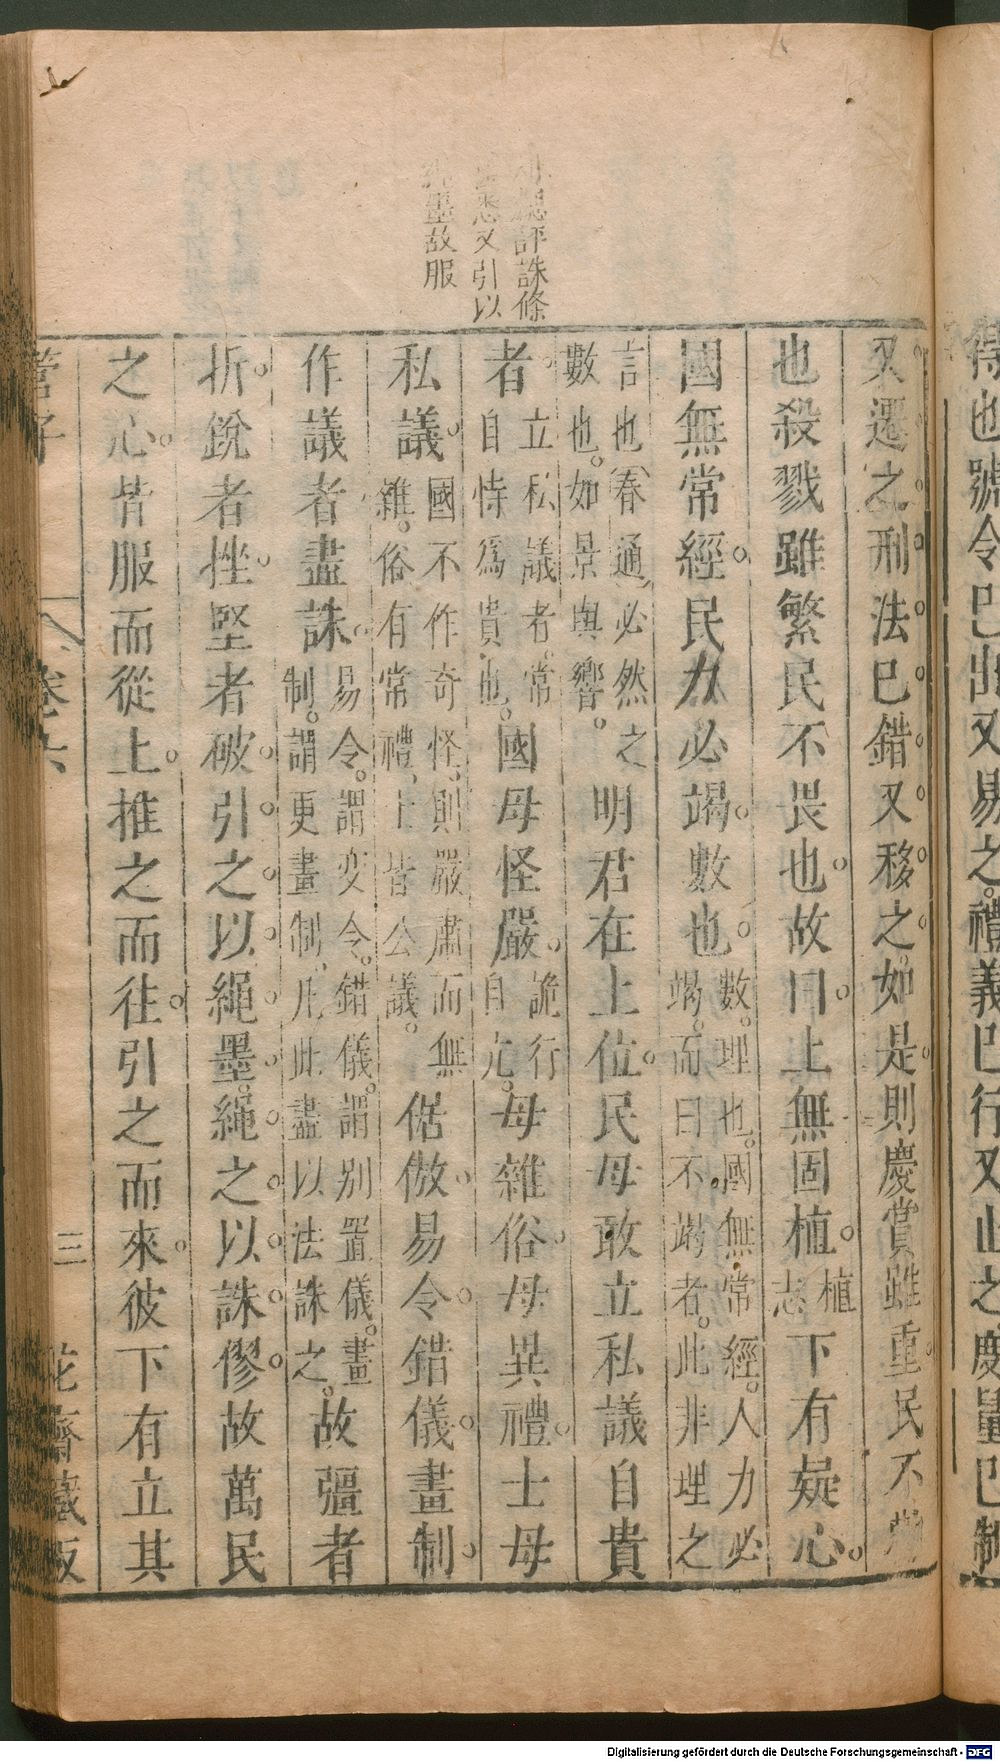 得也號令已出又易之禮義已行又止之度量已制
又遷之刑法已錯又移之如是則慶賞雖重民不勸
也殺戮雖繁民不畏也故曰上無固植植志下有疑心
國無常經民力必竭數也數理也國無常經人力必竭而曰不竭者此非理之
言也(春通)必然之數也如景與響明君在上位民毋敢立私議自貴
者立私議者常自恃爲貴也國毋怪嚴詭行自尤毋雜俗毋異禮士毋
私議國不作奇怪則嚴肅而無雜俗有常禮上皆公議倨傲易令錯儀畫制
作議者盡誅易令謂变令錯儀謂別置儀畫制謂更畫制凡此盡以法誅之故彊者
折銳者挫堅者破引之以繩墨繩之以誅僇故萬民
之心皆服而從上推之而往引之而來彼下有立其
總評誅條
悉又引以
墨故服
管子
卷六
三
花齋藏板
Digitalisierung gefördert durch die Deutsche Forschungsgemeinschaft - DFG